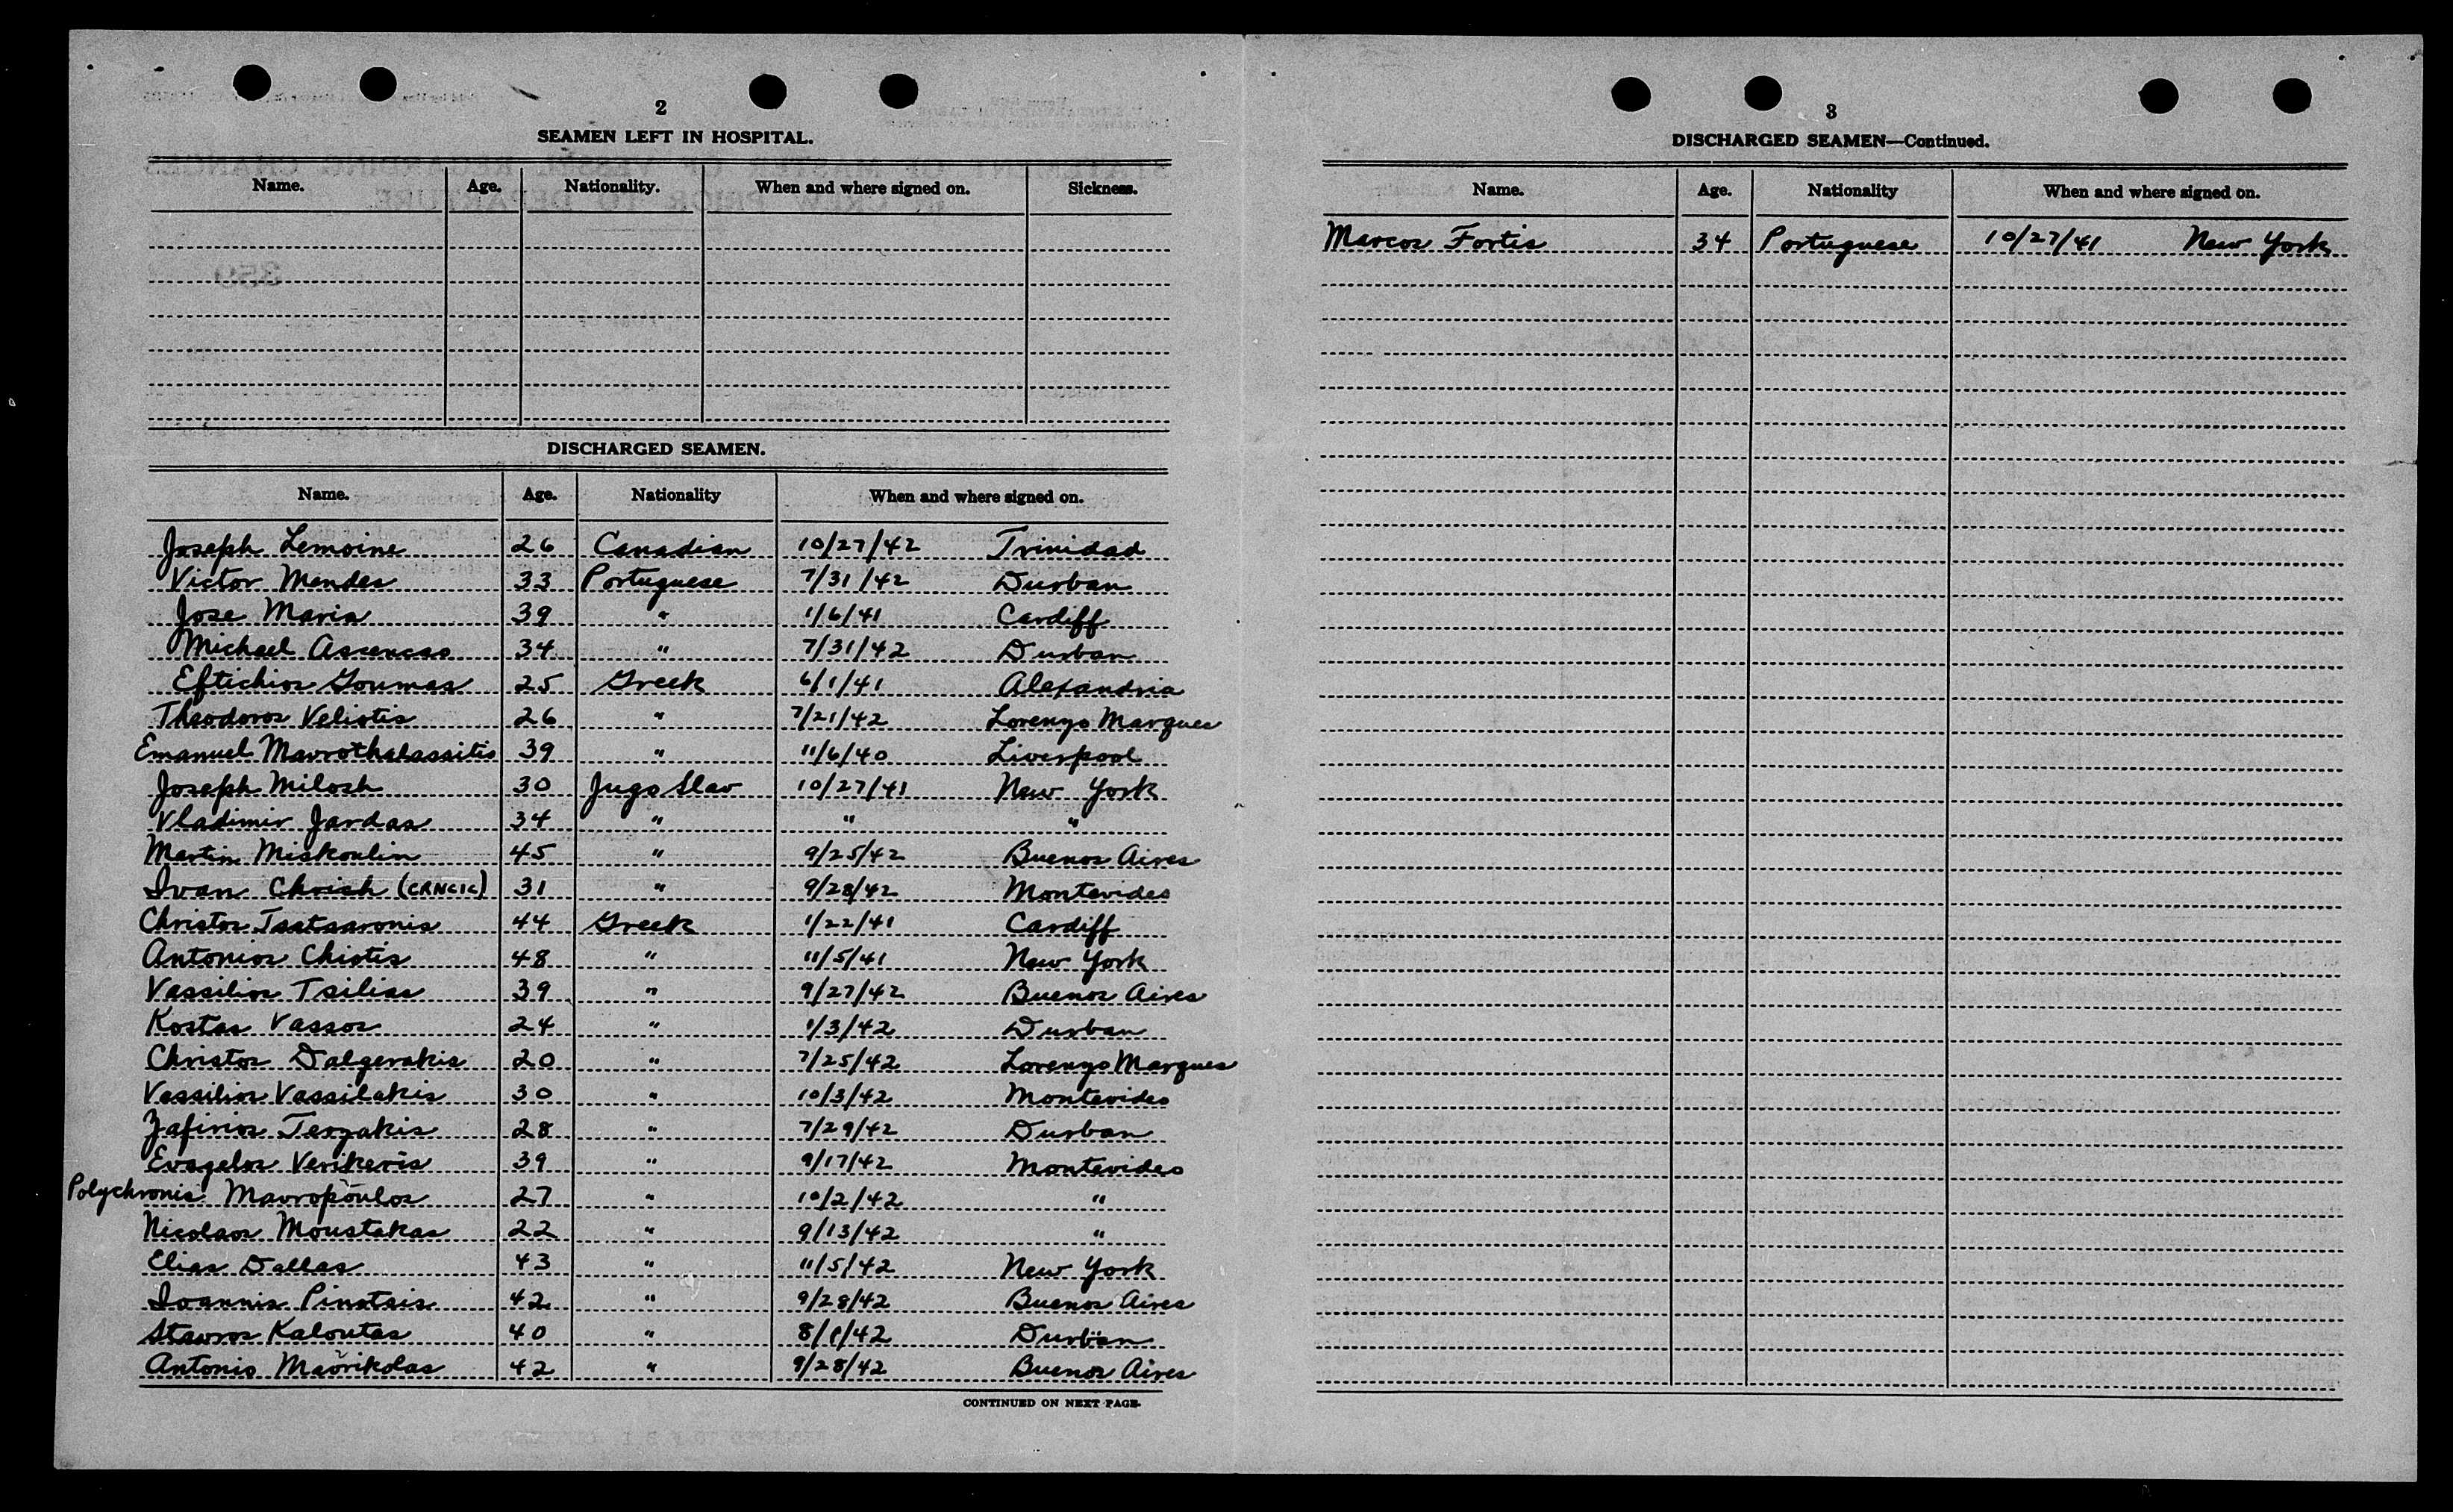 2
SEAMEN LEFT IN HOSPITAL.
Name. Age. Nationality. When and where signed on. Sickness.
DISCHARGED SEAMEN.
Name. Age. Nationality When and where signed on.
Joseph Lemoine 26 Canadian 10/27/42 Trinidad
Victor Mendes 33 Portuguese 7/31/42 Durban
Jose Maria 39 " 1/6/41 Cardiff
Michael Ascencao 34 " 7/31/42 Durban
Eftichios Goumas 25 Greek 6/1/41 Alexandria
Theodoros Veliotis 26 " 7/21/42 Lorenzo Marques
Emanuel Mavrothalassitis 39 " 11/6/40 Liverpool
Joseph Milosh 30 Jugo Slav 10/27/41 New York
Vladimir Jardas 34 " " "
Martin Miskoulin 45 " 9/25/42 Buenos Aires
Ivan Chrish (CRNCIC) 31 " 9/28/42 Montevideo
Christos Tsatsaronis 44 Greek 1/22/41 Cardiff
Antonios Chiotis 48 " 11/5/41 New York
Vassilios Tsilias 39 " 9/27/42 Buenos Aires
Kostas Vassos 24 " 1/3/42 Durban
Christos Dalgerakis 20 " 7/25/42 Lorenzo Marques
Vassilios Vassilakis 30 " 10/3/42 Montevideo
Zafirios Terzakis 28 " 7/29/42 Durban
Evagelos Verikeris 39 " 9/17/42 Montevideo
Polychronis Mavropoulos 27 " 10/2/42 "
Nicolaos Moustakas 22 " 9/13/42 "
Elias Dallas 43 " 11/5/42 New York
Ioannis Pinotsis 42 " 9/28/42 Buenos Aires
Stavros Kaloutas 40 " 8/1/42 Durban
Antonio Mavrikolas 42 " 9/28/42 Buenos Aires
CONTINUED ON NEXT PAGE.
3
DISCHARGED SEAMEN—Continued.
Name. Age. Nationality When and where signed on.
Marcos Fortis 34 Portuguese 10/27/41 New York